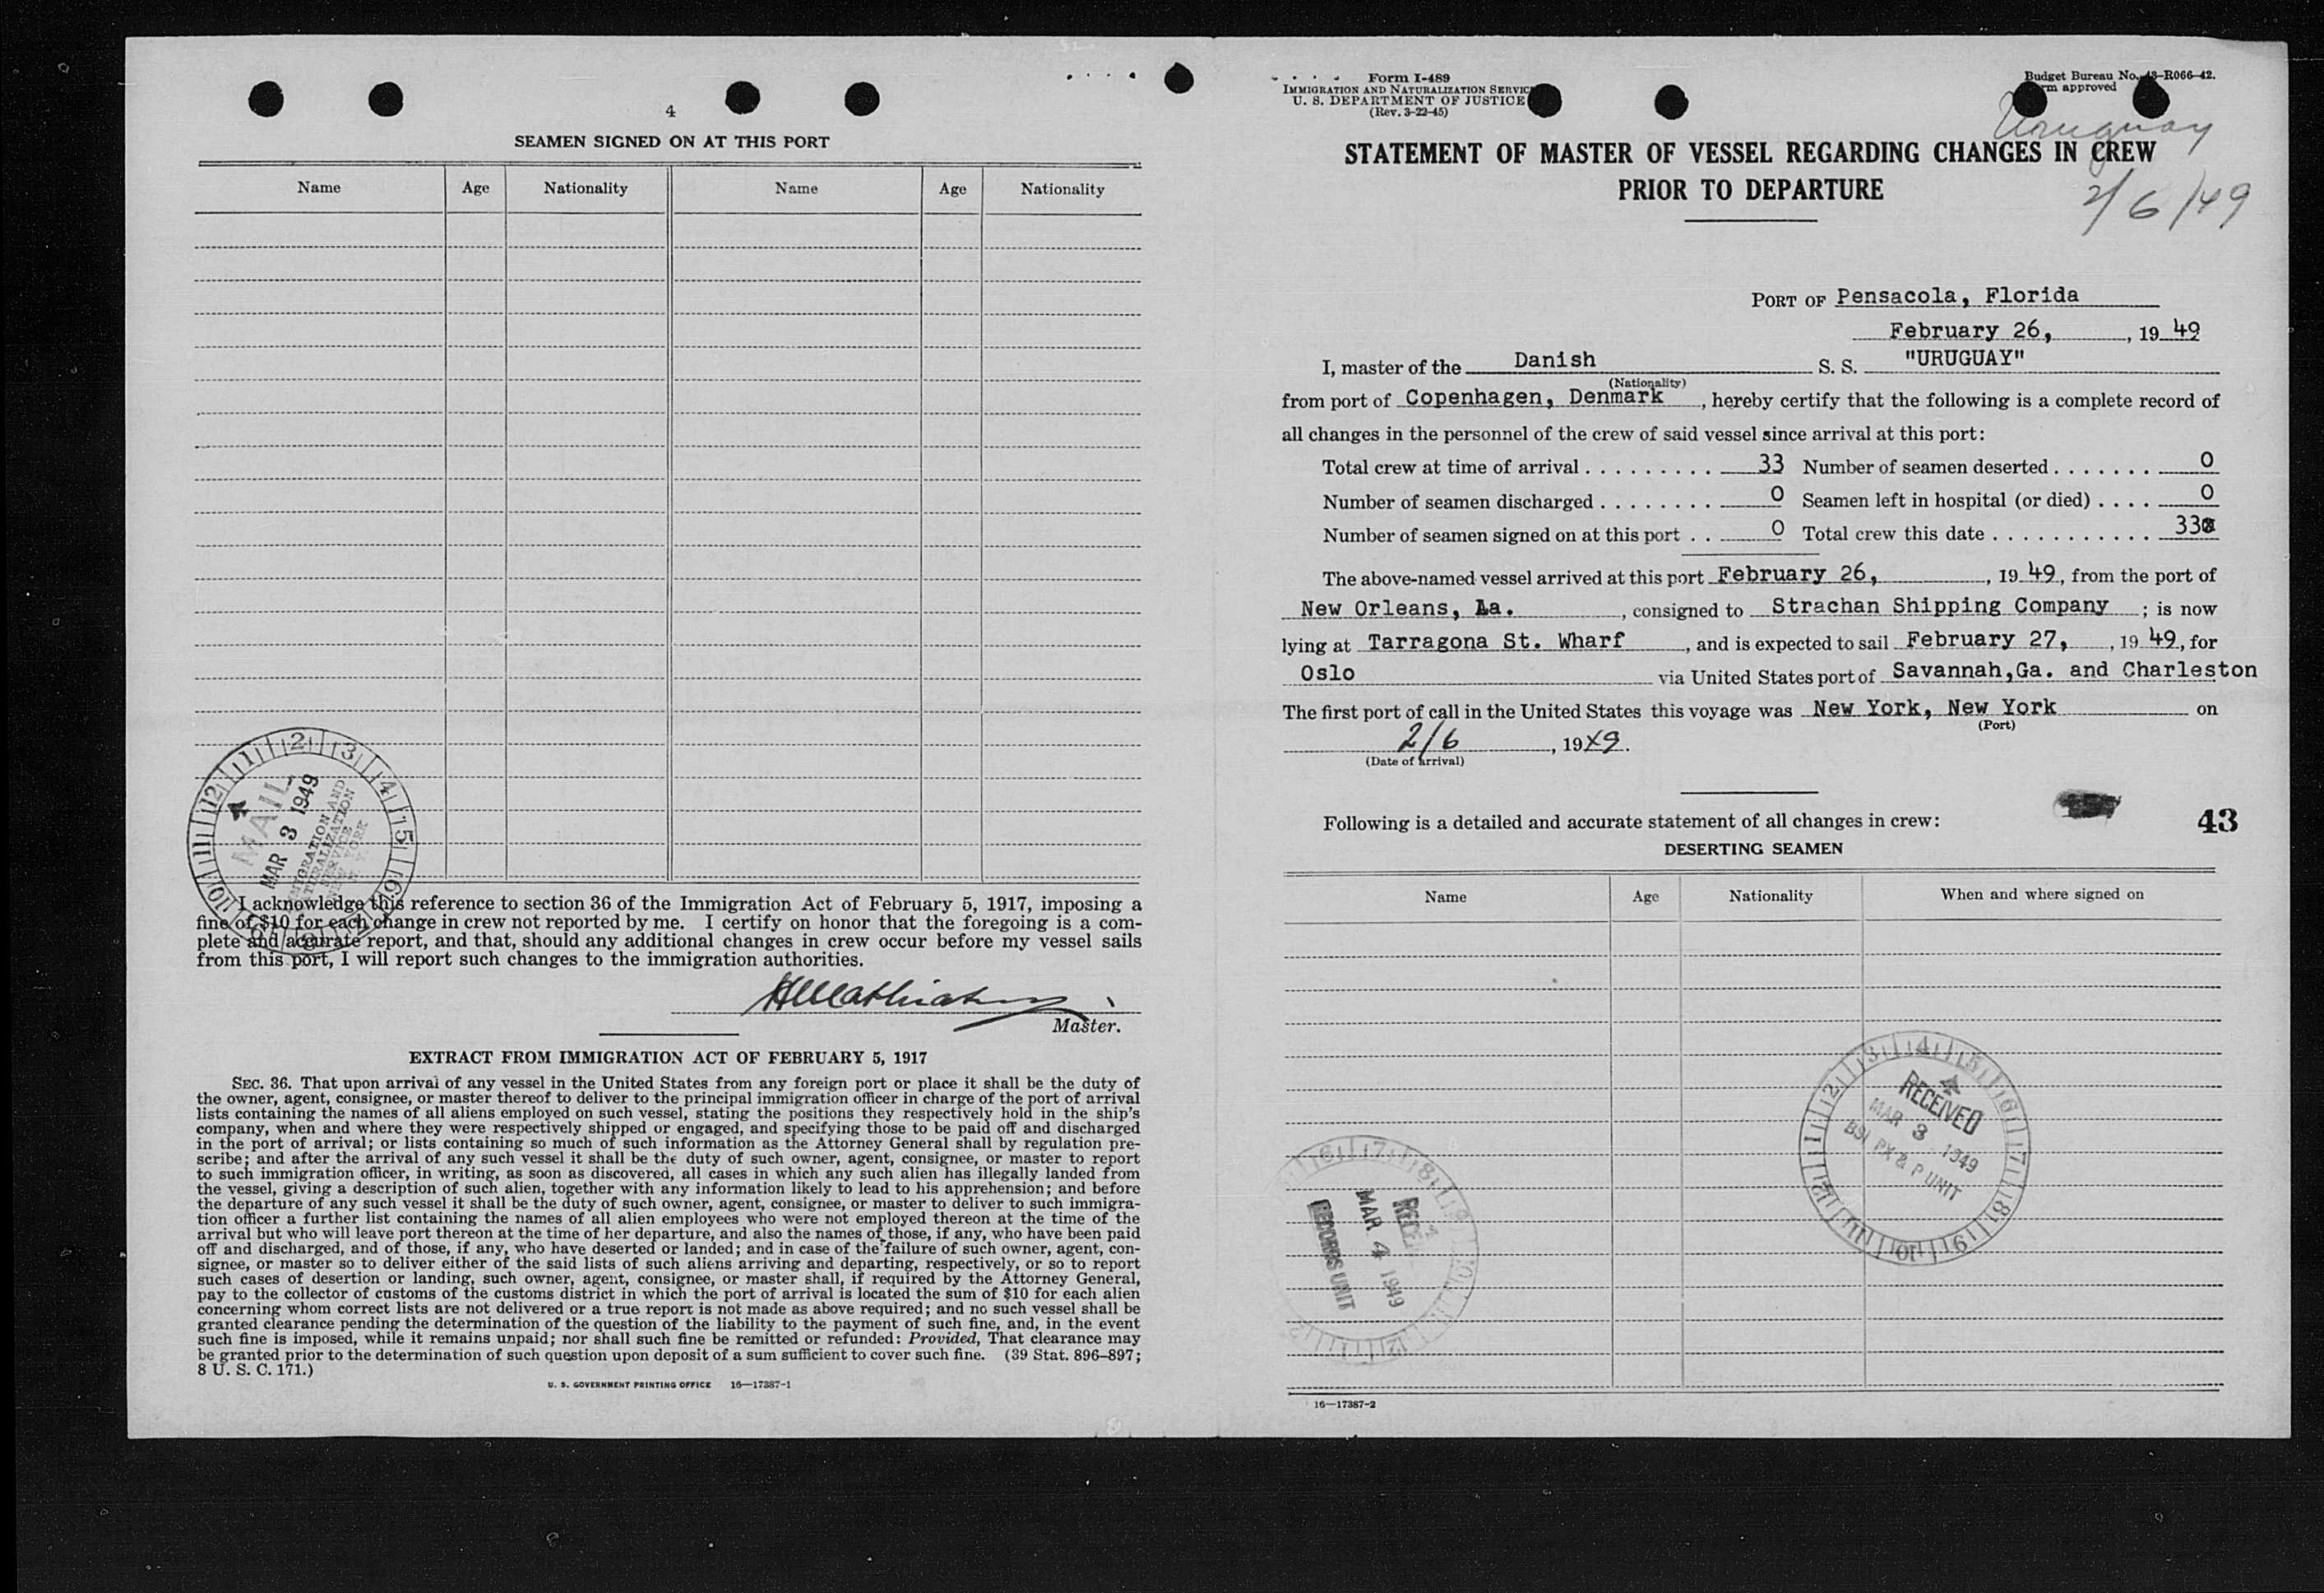 4
SEAMEN SIGNED ON AT THIS PORT
Name Age Nationality Name Age Nationality
MAIL
MAR 3 1949
IMMIGRATION AND
NATURALIZATION
SERVICE
NEW YORK
N. Y.
I acknowledge this reference to section 36 of the Immigration Act of February 5, 1917, imposing a
fine of $10 for each change in crew not reported by me. I certify on honor that the foregoing is a com-
plete and accurate report, and that, should any additional changes in crew occur before my vessel sails
from this port, I will report such changes to the immigration authorities.
Master.
EXTRACT FROM IMMIGRATION ACT OF FEBRUARY 5, 1917
SEC. 36. That upon arrival of any vessel in the United States from any foreign port or place it shall be the duty of
the owner, agent, consignee, or master thereof to deliver to the principal immigration officer in charge of the port of arrival
lists containing the names of all aliens employed on such vessel, stating the positions they respectively hold in the ship's
company, when and where they were respectively shipped or engaged, and specifying those to be paid off and discharged
in the port of arrival; or lists containing so much of such information as the Attorney General shall by regulation pre-
scribe; and after the arrival of any such vessel it shall be the duty of such owner, agent, consignee, or master to report
to such immigration officer, in writing, as soon as discovered, all cases in which any such alien has illegally landed from
the vessel, giving a description of such alien, together with any information likely to lead to his apprehension; and before
the departure of any such vessel it shall be the duty of such owner, agent, consignee, or master to deliver to such immigra-
tion officer a further list containing the names of all alien employees who were not employed thereon at the time of the
arrival but who will leave port thereon at the time of her departure, and also the names of those, if any, who have been paid
off and discharged, and of those, if any, who have deserted or landed; and in case of the failure of such owner, agent, con-
signee, or master so to deliver either of the said lists of such aliens arriving and departing, respectively, or so to report
such cases of desertion or landing, such owner, agent, consignee, or master shall, if required by the Attorney General,
pay to the collector of customs of the customs district in which the port of arrival is located the sum of $10 for each alien
concerning whom correct lists are not delivered or a true report is not made as above required; and no such vessel shall be
granted clearance pending the determination of the question of the liability to the payment of such fine, and, in the event
such fine is imposed, while it remains unpaid; nor shall such fine be remitted or refunded: Provided, That clearance may
be granted prior to the determination of such question upon deposit of a sum sufficient to cover such fine. (39 Stat. 896–897;
8 U. S. C. 171.)
U. S. GOVERNMENT PRINTING OFFICE 16—17387-1
Form I-489
IMMIGRATION AND NATURALIZATION SERVICE
U. S. DEPARTMENT OF JUSTICE
(Rev. 3-22-45)
Budget Bureau No. 43-R066-42.
Form approved
Uruguay
2/6/49
STATEMENT OF MASTER OF VESSEL REGARDING CHANGES IN CREW
PRIOR TO DEPARTURE
PORT OF Pensacola, Florida
February 26, , 19 49
I, master of the Danish S. S. "URUGUAY"
(Nationality)
from port of Copenhagen, Denmark , hereby certify that the following is a complete record of
all changes in the personnel of the crew of said vessel since arrival at this port:
Total crew at time of arrival . . . . . . . . . 33 Number of seamen deserted . . . . . . . 0
Number of seamen discharged . . . . . . . . 0 Seamen left in hospital (or died) . . . . 0
Number of seamen signed on at this port . . 0 Total crew this date . . . . . . . . . . . . 33
The above-named vessel arrived at this port February 26, , 19 49, from the port of
New Orleans, La. , consigned to Strachan Shipping Company ; is now
lying at Tarragona St. Wharf , and is expected to sail February 27, , 19 49, for
Oslo via United States port of Savannah,Ga. and Charleston
The first port of call in the United States this voyage was New York, New York on
(Port)
2/6 , 1949.
(Date of arrival)
43
Following is a detailed and accurate statement of all changes in crew:
DESERTING SEAMEN
Name Age Nationality When and where signed on
RECEIVED
MAR 3 1949
BSI PX & P UNIT
MAR 4 1949
RECORDS UNIT
16—17387-2